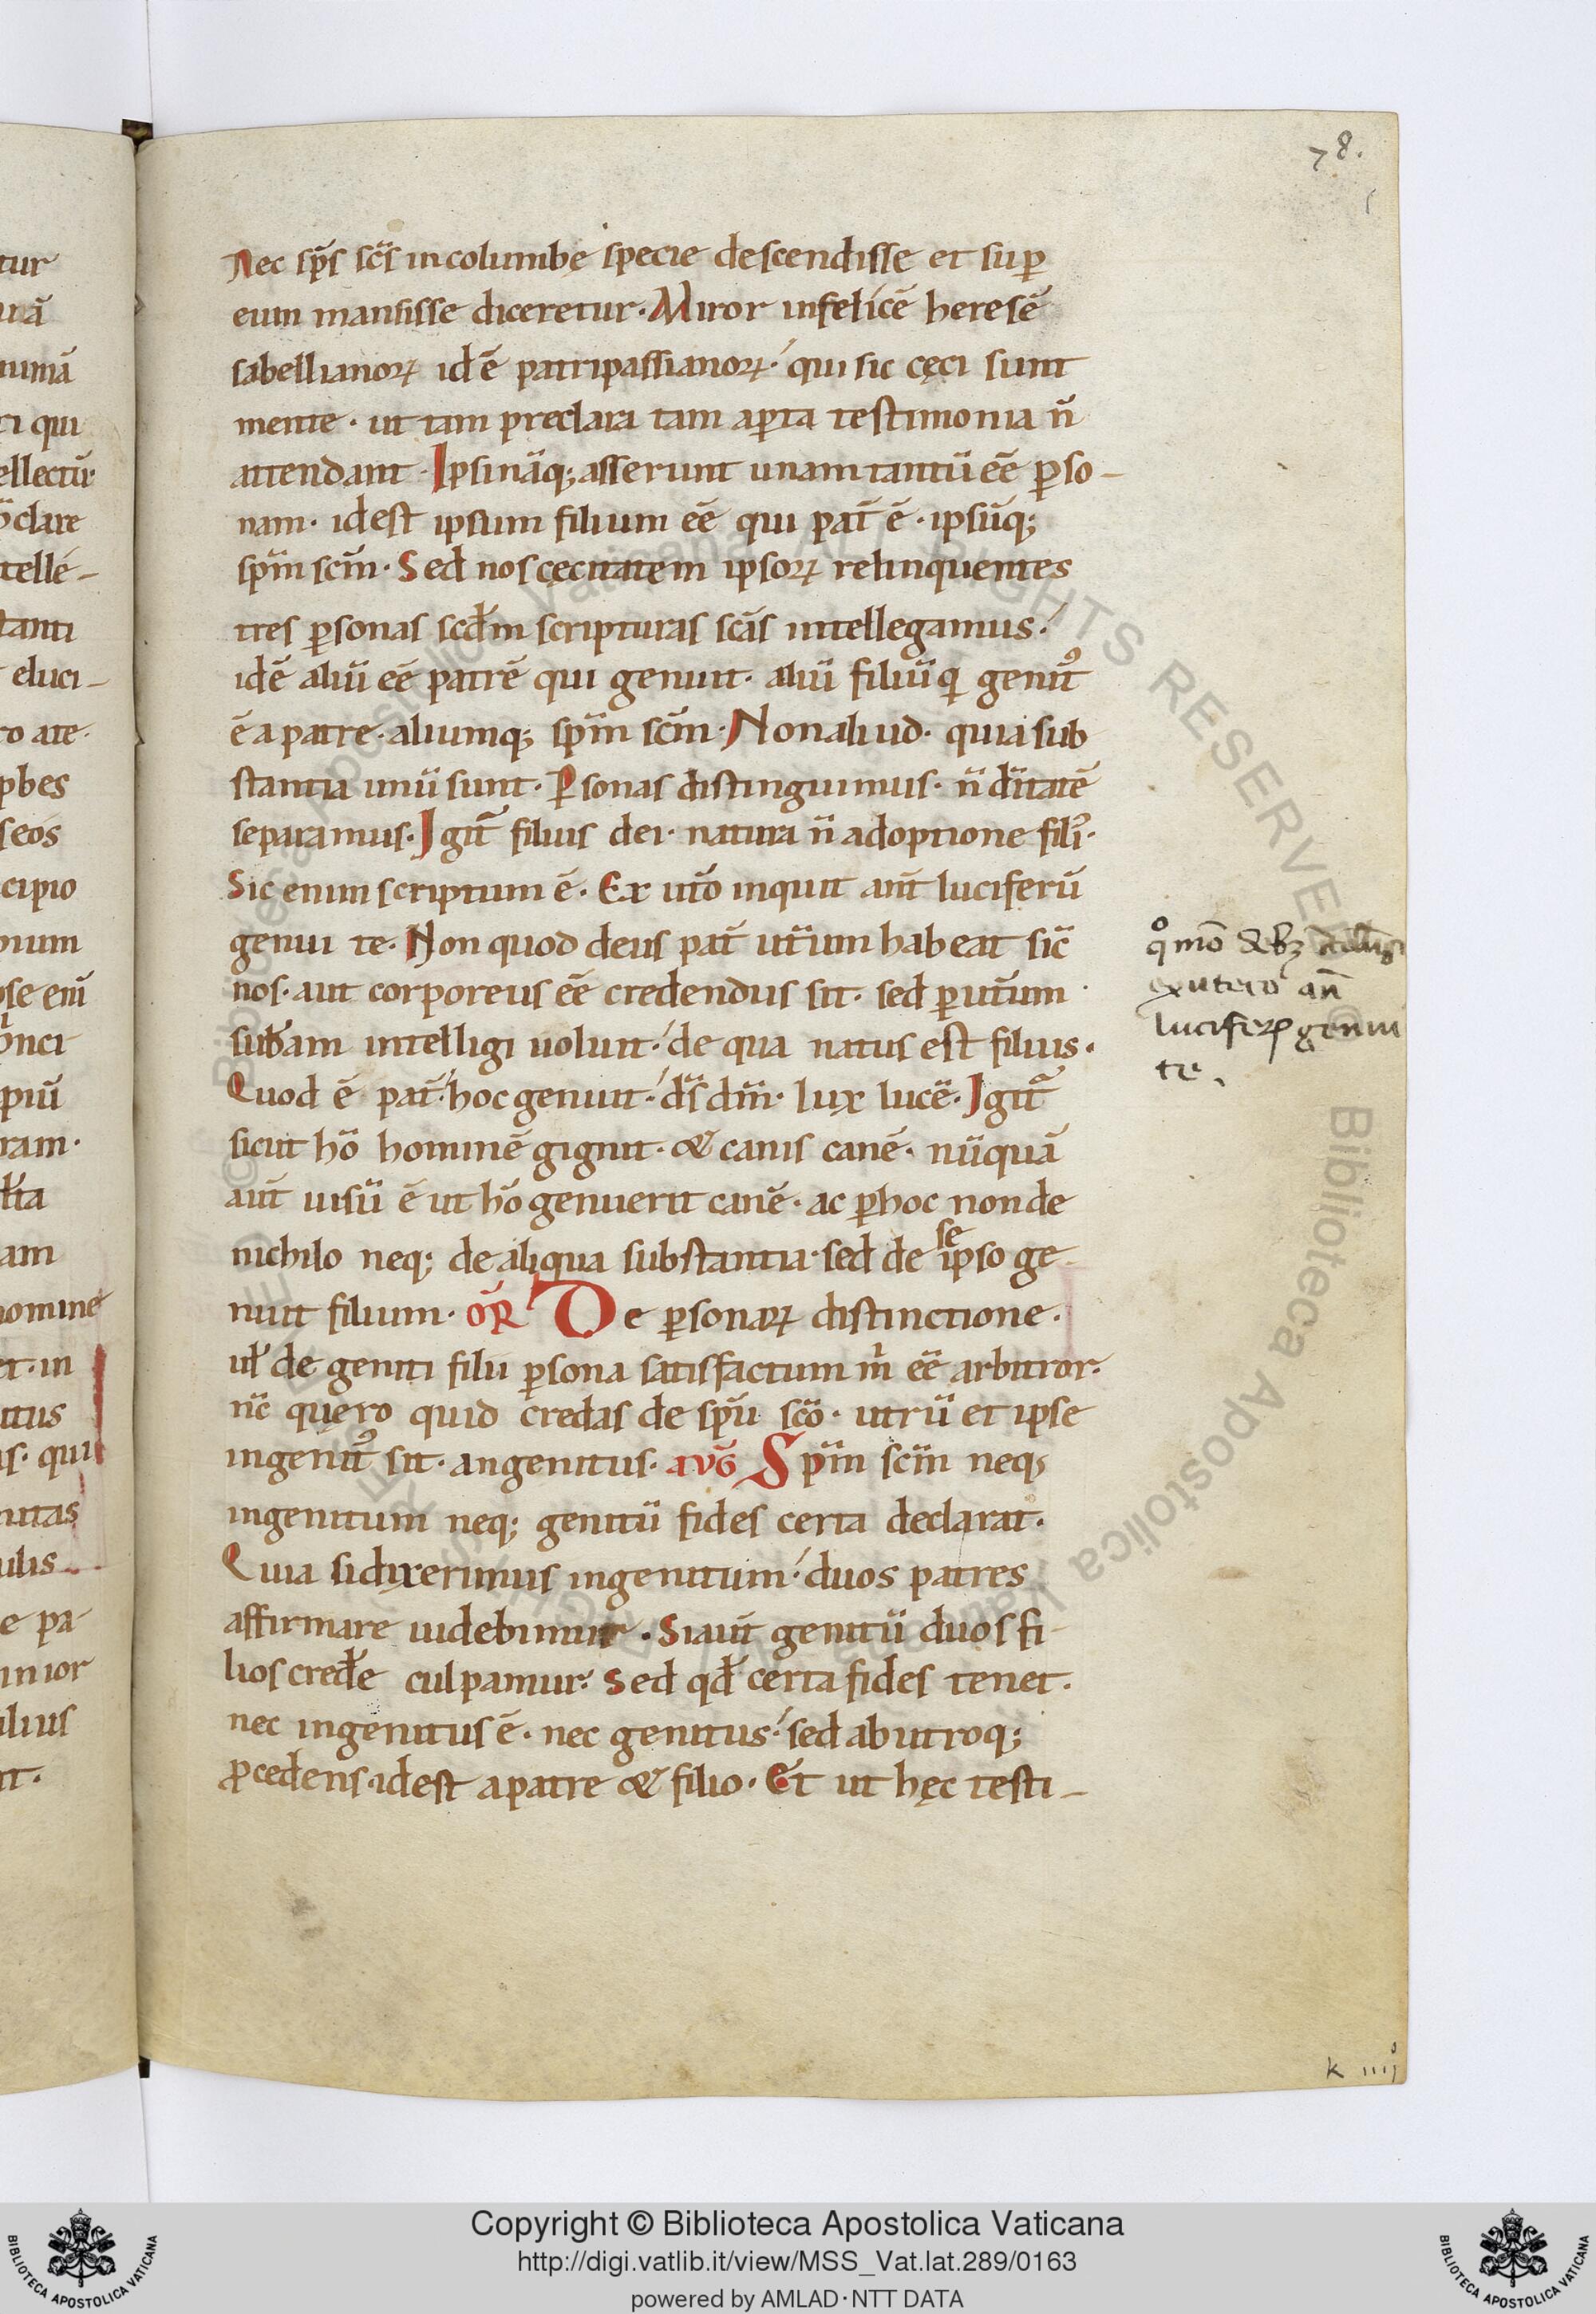 78.
Nec sp̄s sc̄s in columbę specie descendisse et sup̄
eum mansisse diceretur. Miror infelicē heresē
sabellianoꝝ idē patripassianoꝝ. qui sic cęci sunt
mente. ut tam preclara tam aꝑta testimonia n̄
attendant. Ipsi nāq; asserunt unam tantū eē ꝑso-
nam. idest ipsum filium eē qui pat̄ ē. ipsūq;
sp̄m sc̄m. Sed nos cęcitatem ipsoꝝ relinquentes
tres ꝑsonas scđm scripturas sc̄as intellegamus.
idē aliū eē patrē qui genuit. aliū filiū q̇ genitꝰ
ē a patre. aliumq; sp̄m sc̄m. Non aliud. quia sub
stantia unū sunt. Ꝑsonas distinguimus. n̄ d̄itatē
separamus. Igit̄ filius dei. natura n̄ adoptione filiꝰ.
Sic enim scriptum ē. Ex ut̄o inquit ant̄ luciferū
genui te. Non quod deus pat̄ ut̄um habeat sic̄
nos. aut corporeus eē credendus sit. sed ꝑ ut̄um
sub̄am intelligi uoluit. de qua natus est filius.
Quod ē pat̄. hoc genuit. d̄s d̄m. lux lucē. Igit̄
sicut hō hominē gignit. & canis canē. nūquā
aut̄ uisū ē ut hō genuerit canē. ac ꝑhoc non de
nichilo neq; de aliqua substantia. sed de se ipso ge-
nuit filium. OR̄ De ꝑsonaꝝ distinctione.
ul̄ de geniti filii ꝑsona satisfactum m̄ eē arbitror.
nc̄ quęro quid credas de sp̄u sc̄o. utrū et ipse
ingenitꝰ sit. an genitus. AVḠ Sp̄m sc̄m neq;
ingenitum neq; genitū fides certa declarat.
Quia si dixerimus ingenitum. duos patres
affirmare uidebimur. Si aut̄ genitū duos fi-
lios cred̄e culpamur. Sed qd̄ certa fides tenet.
nec ingenitus ē. nec genitus. sed ab utroq;
ꝓcedens. idest a patre & filio. Et ut hęc testi-
ex utero an̄
luciferū genui
te.
k iiij
Copyright © Biblioteca Apostolica Vaticana
http://digi.vatlib.it/view/MSS_Vat.lat.289/0163
powered by AMLAD·NTT DATA
BIBLIOTECA APOSTOLICA VATICANA
BIBLIOTECA APOSTOLICA VATICANA